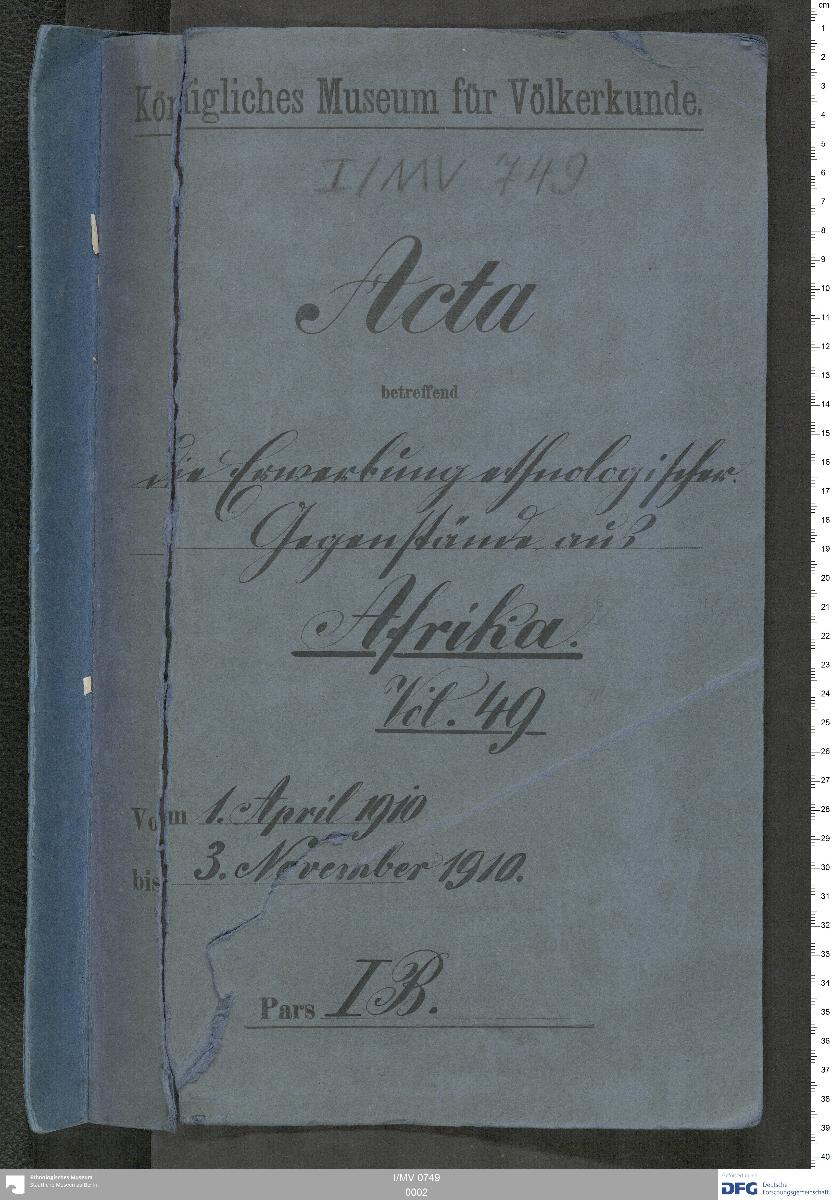 Königliches Museum für Völkerkunde.
I/MV 749
Acta
betreffend
die Erwerbung ethnologischer
Gegenstände aus
Afrika.
Vol. 49
Vom 1. April 1910
bis 3. November 1910.
Pars I B.
cm
1
2
3
4
5
6
7
8
9
10
11
12
13
14
15
16
17
18
19
20
21
22
23
24
25
26
27
28
29
30
31
32
33
34
35
36
37
38
39
40
Ethnologisches Museum
Staatliche Museen zu Berlin
I/MV 0749
0002
Gefördert durch
DFG Deutsche
Forschungsgemeinschaft